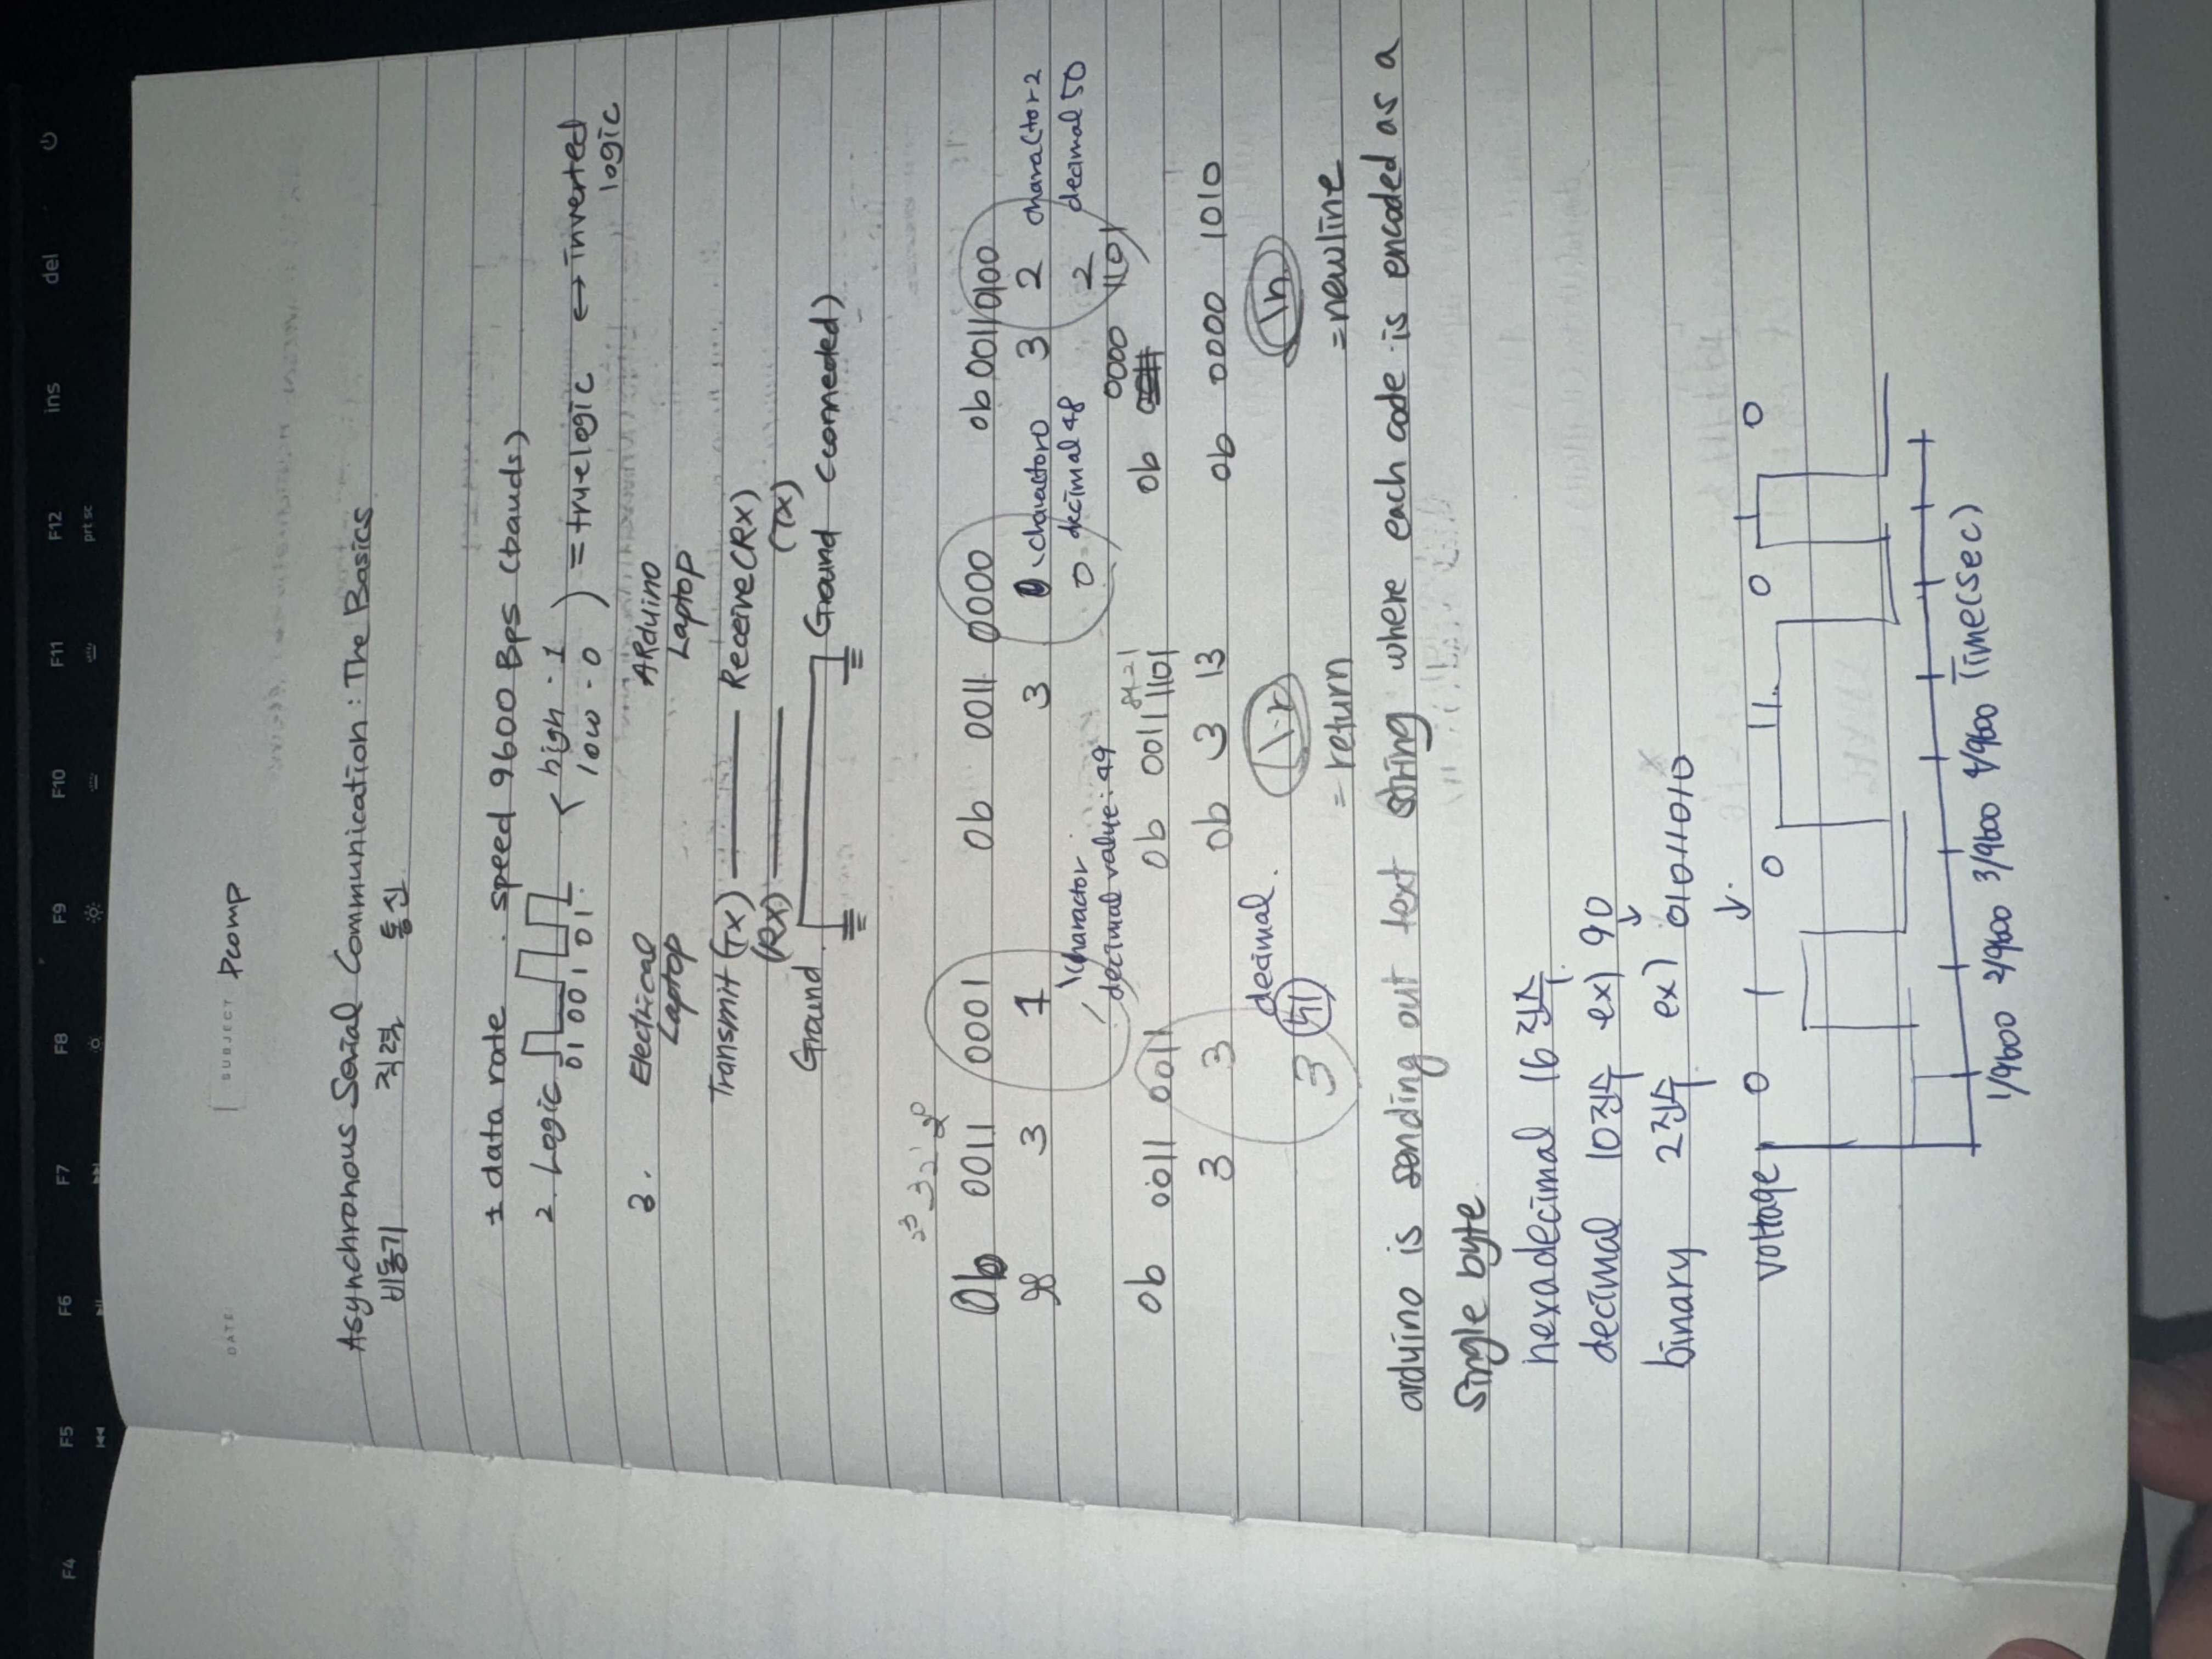 DATE
SUBJECT Pcomp
Asynchronous Serial Communication : The Basics
비동기 직렬 통신
1 data rate : speed 9600 Bps (bauds)
2. Logic < high - 1 ) = truelogic ↔ inverted
01 00 1 01. low - 0 logic
3. Electrical ARduino
Laptop Laptop
Transmit (Tx) Receive (Rx)
(Rx) (Tx)
Ground Ground (connected)
0b 0011 0001 0b 0011 0000 0b 0011 0100
3 1 3 0 charactor 0 3 2 charactor 2
charactor 0 decimal 48 2 decimal 50
decimal value : 49
0b 0011 0011 0b 0011 1101 0b 0000 1101
8421
3 3 0b 3 13 0b 0000 1010
3 51 decimal. \r \n
= return = newline
arduino is sending out text string where each code is encoded as a
single byte.
hexadecimal 16진수
decimal 10진수 ex) 90
↓
binary 2진수 ex) 01011010
↓
voltage 0 1 0 11 0 1 0
1/9600 2/9600 3/9600 4/9600 Time(sec)
F4
F5
F6
F7
F8
F9
F10
F11
F12
prt sc
ins
del